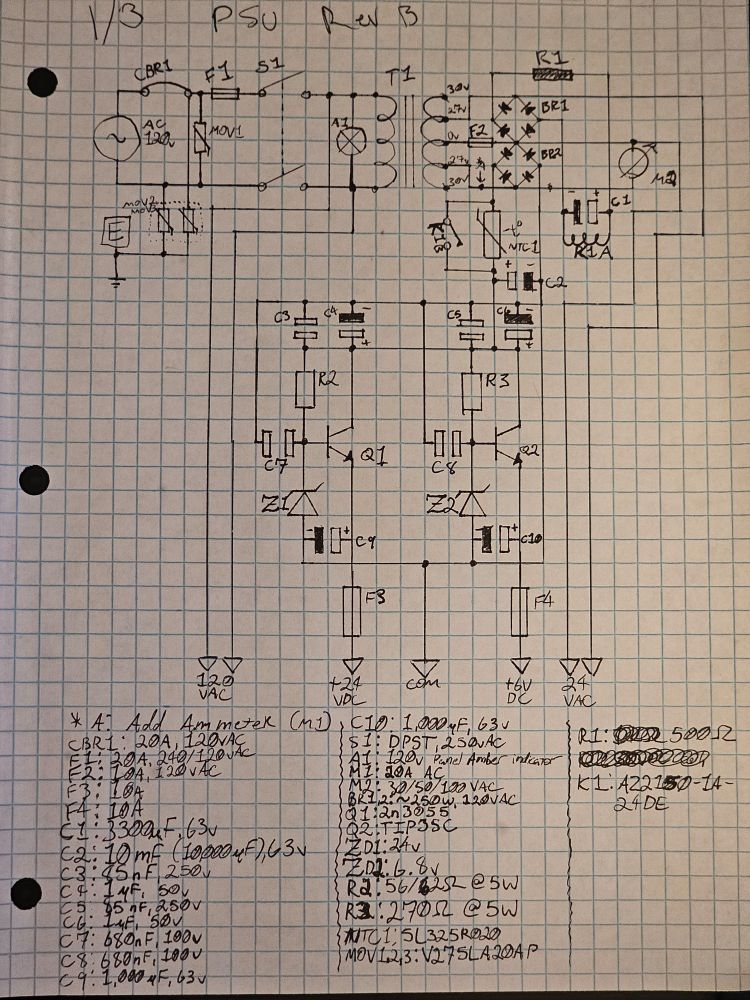 1/3 PSU Rev B
CBR1
F1
S1
T1
R1
30v
27v
0v
27v
30v
F2
BR1
BR2
AC
120
MOV1
A1
M2
MOV2
E
K1B
-t°
NTC1
C1
R1A
C2
C3
C4
C5
C6
R2
R3
C7
Q1
C8
Q2
Z1
Z2
C9
C10
F3
F4
120
VAC
+24
VDC
COM
+6V
DC
24
VAC
* A: Add Ammeter (M1)
CBR1: 20A, 120VAC
F1: 20A, 240/120VAC
F2: 10A, 120VAC
F3: 10A
F4: 10A
C1: 3300µF, 63v
C2: 10mF (10,000µF), 63v
C3: 85nF, 250v
C4: 1µF, 50v
C5: 85nF, 250v
C6: 1µF, 50v
C7: 680nF, 100v
C8: 680nF, 100v
C9: 1,000µF, 63v
C10: 1,000µF, 63v
S1: DPST, 250VAC
A1: 120v Panel Amber indicator
M1: 20A AC
M2: 30/50/100 VAC
BR1,2: ~250W, 120VAC
Q1: 2n3055
Q2: TIP35C
ZD1: 24v
ZD2: 6.8v
R2: 56/62Ω @5W
R3: 270Ω @5W
NTC1: SL325R020
MOV1,2,3: V275LA20AP
R1: 500Ω
K1: AZ2150-1A-
24DE